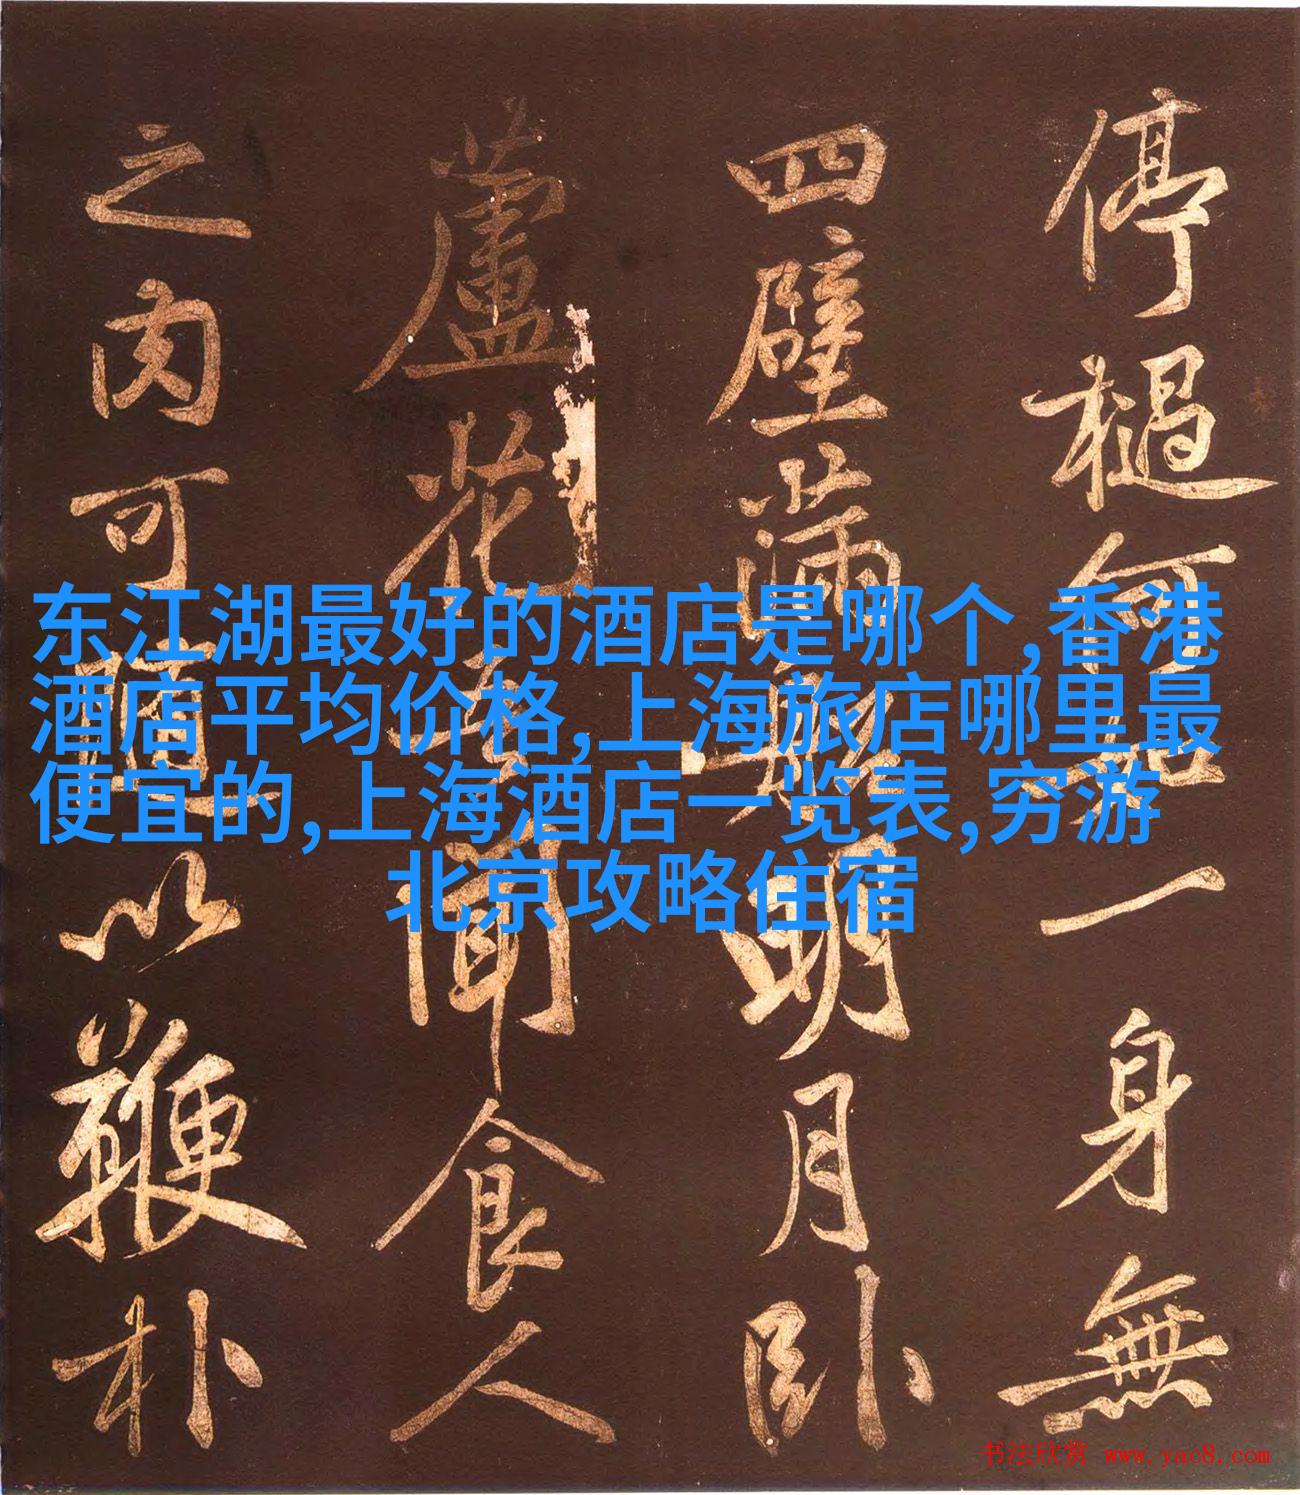 停檛何一身無
四壁滿船明月臥
蘆花聞食人
之肉可隨以鞭朴
东江湖最好的酒店是哪个,香港
酒店平均价格,上海旅店哪里最
便宜的,上海酒店一览表,穷游
北京攻略住宿
书法欣赏 www.yac8.com